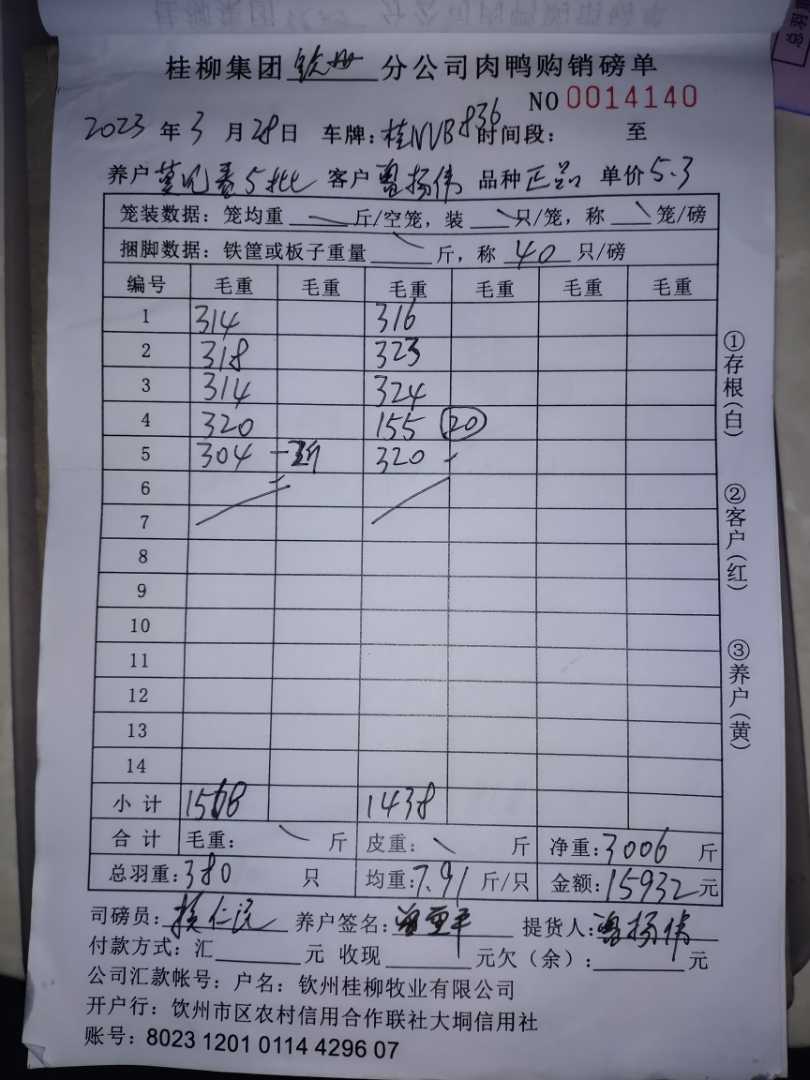 桂柳集团 钦州 分公司肉鸭购销磅单
NO 0014140
2023 年 3 月 28 日 车牌: 桂NVB836 时间段: 至
养户 5批 客户 曾扬伟 品种 正品 单价 5.3
笼装数据: 笼均重 斤/空笼, 装 只/笼, 称 笼/磅
捆脚数据: 铁筐或板子重量 斤, 称 40 只/磅
编号 毛重 毛重 毛重 毛重 毛重 毛重
1 314 316
2 318 323
3 314 324
4 320 155 20
5 304 320
6
7
8
9
10
11
12
13
14
小计 1568 1438
合计 毛重: 斤 皮重: 斤 净重: 3006 斤
总羽重: 380 只 均重: 7.91 斤/只 金额: 15932 元
司磅员: 养户签名: 提货人: 曾扬伟
付款方式: 汇 元 收现 元欠(余): 元
公司汇款帐号: 户名: 钦州桂柳牧业有限公司
开户行: 钦州市区农村信用合作联社大垌信用社
账号: 8023 1201 0114 4296 07
①存根(白)
②客户(红)
③养户(黄)